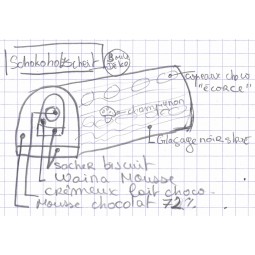 Schokoholzscheit
copeaux choco
"ÉCORCE"
champignon
Glaçage noir
sacher biscuit
Waina Mousse
crémeux lait choco.
Mousse chocolat 72%